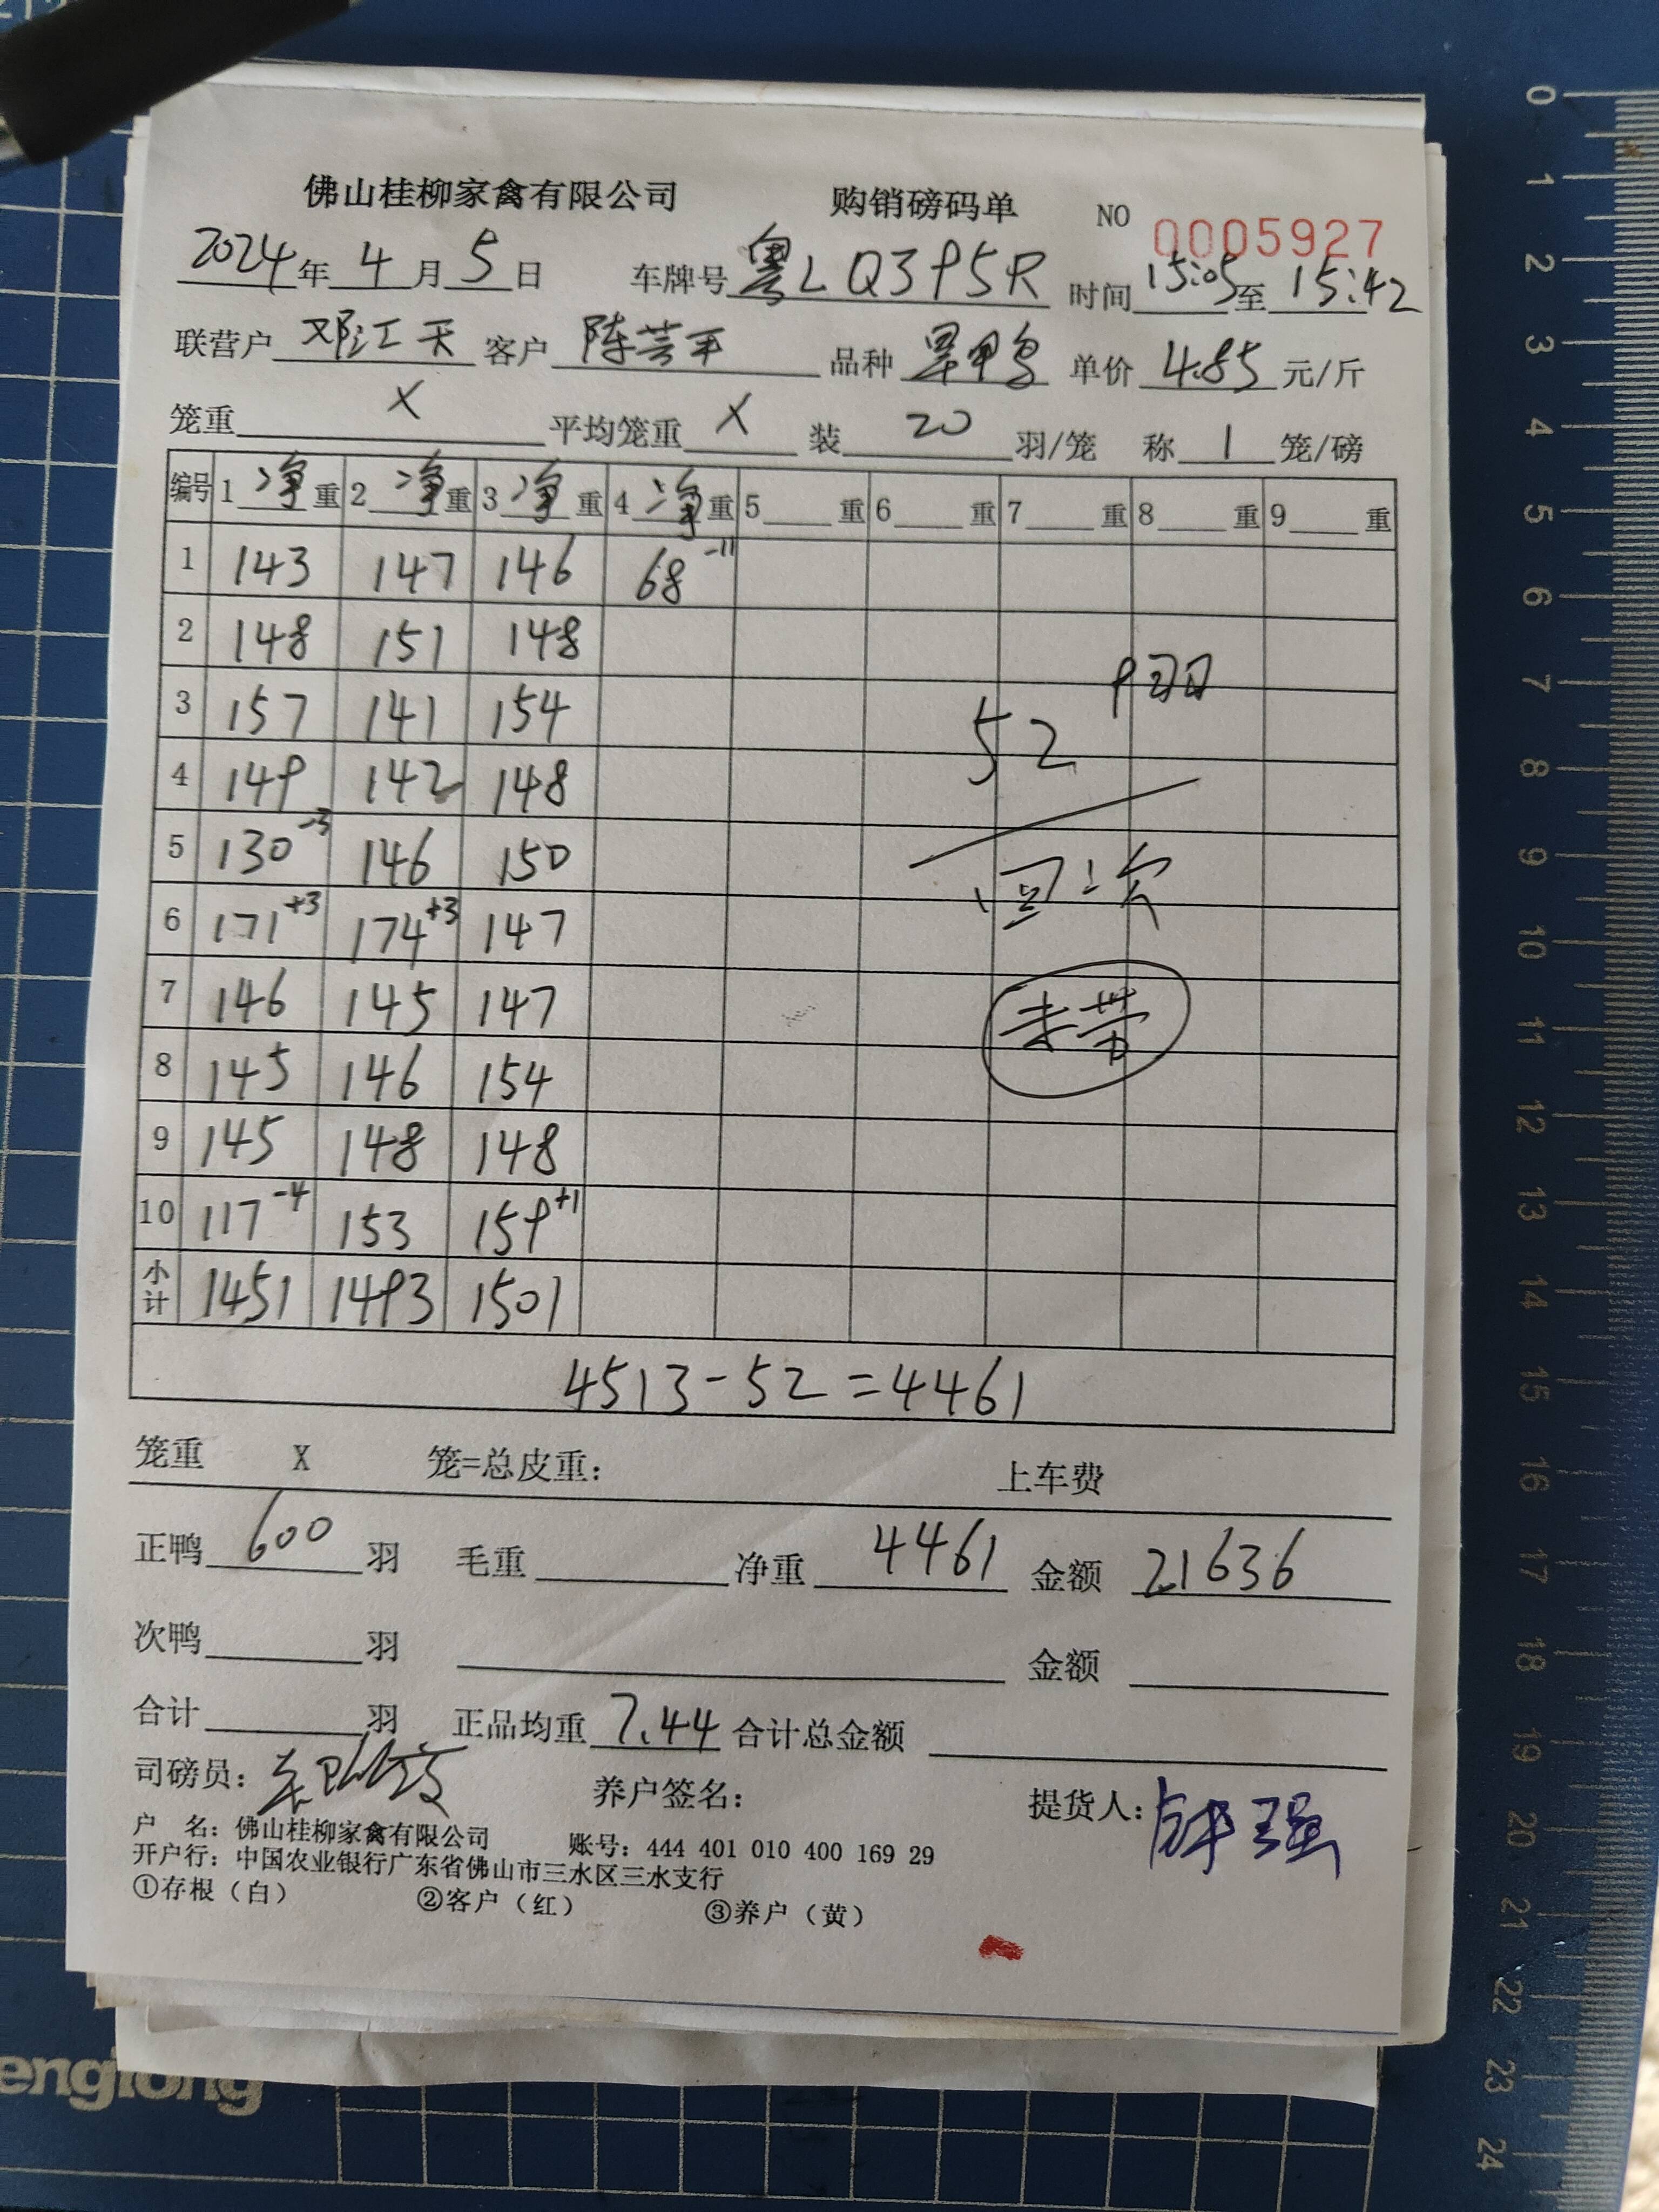 佛山桂柳家禽有限公司 购销磅码单 NO 0005927
2024年4月5日 车牌号 粤LQ395R 时间 15:05至15:42
联营户 邓江天 客户 陈芸平 品种 旱鸭 单价 4.85 元/斤
笼重 X 平均笼重 X 装 20 羽/笼 称 1 笼/磅
编号 1 净 重 2 净 重 3 净 重 4 净 重 5 重 6 重 7 重 8 重 9 重
1 143 147 146 68 -11
2 148 151 148
3 157 141 154
9羽
52
4 149 142 148
5 130 -3 146 150
回次
6 171 +3 174 +3 147
7 146 145 147
未带
8 145 146 154
9 145 148 148
10 117 -4 153 159 +1
小计 1451 1493 1501
4513-52=4461
笼重 X 笼=总皮重: 上车费
正鸭 600 羽 毛重 净重 4461 金额 21636
次鸭 羽 金额
合计 羽 正品均重 7.44 合计总金额
司磅员: 养户签名: 提货人:
户 名: 佛山桂柳家禽有限公司 账号: 444 401 010 400 169 29
开户行: 中国农业银行广东省佛山市三水区三水支行
①存根（白） ②客户（红） ③养户（黄）
0
1
2
3
4
5
6
7
8
9
10
11
12
13
14
15
16
17
18
19
20
21
22
23
24